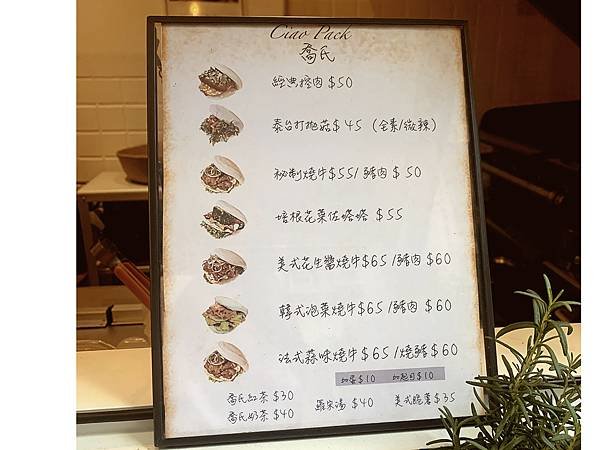 Ciao Pack
喬氏
經典控肉 $50
泰台打拋菇 $45 (全素/微辣)
祕制燒牛 $55/豬肉 $50
培根花菜佐嗒嗒 $55
美式花生醬燒牛 $65/豬肉 $60
韓式泡菜燒牛 $65/豬肉 $60
法式蒜味燒牛 $65/燒豬 $60
加蛋 $10 加起司 $10
喬氏紅茶 $30 羅宋湯 $40 美式脆薯 $35
喬氏奶茶 $40